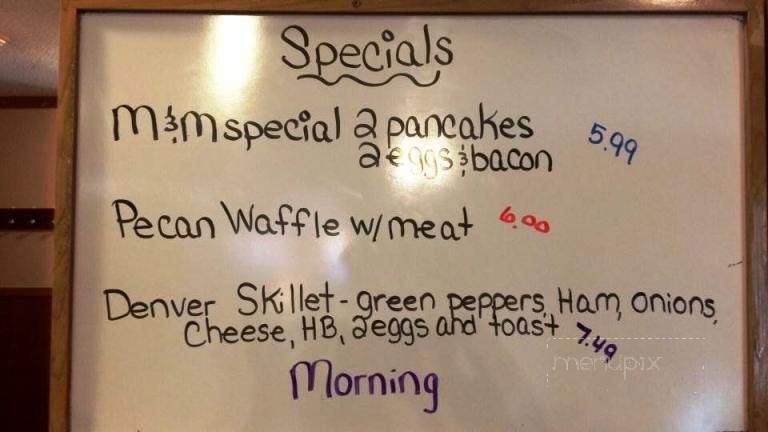 Specials
M&M special 2 pancakes 5.99
2 eggs & bacon
Pecan Waffle w/meat 6.00
Denver Skillet - green peppers, Ham, onions,
Cheese, HB, 2 eggs and toast 7.49
menupix
Morning